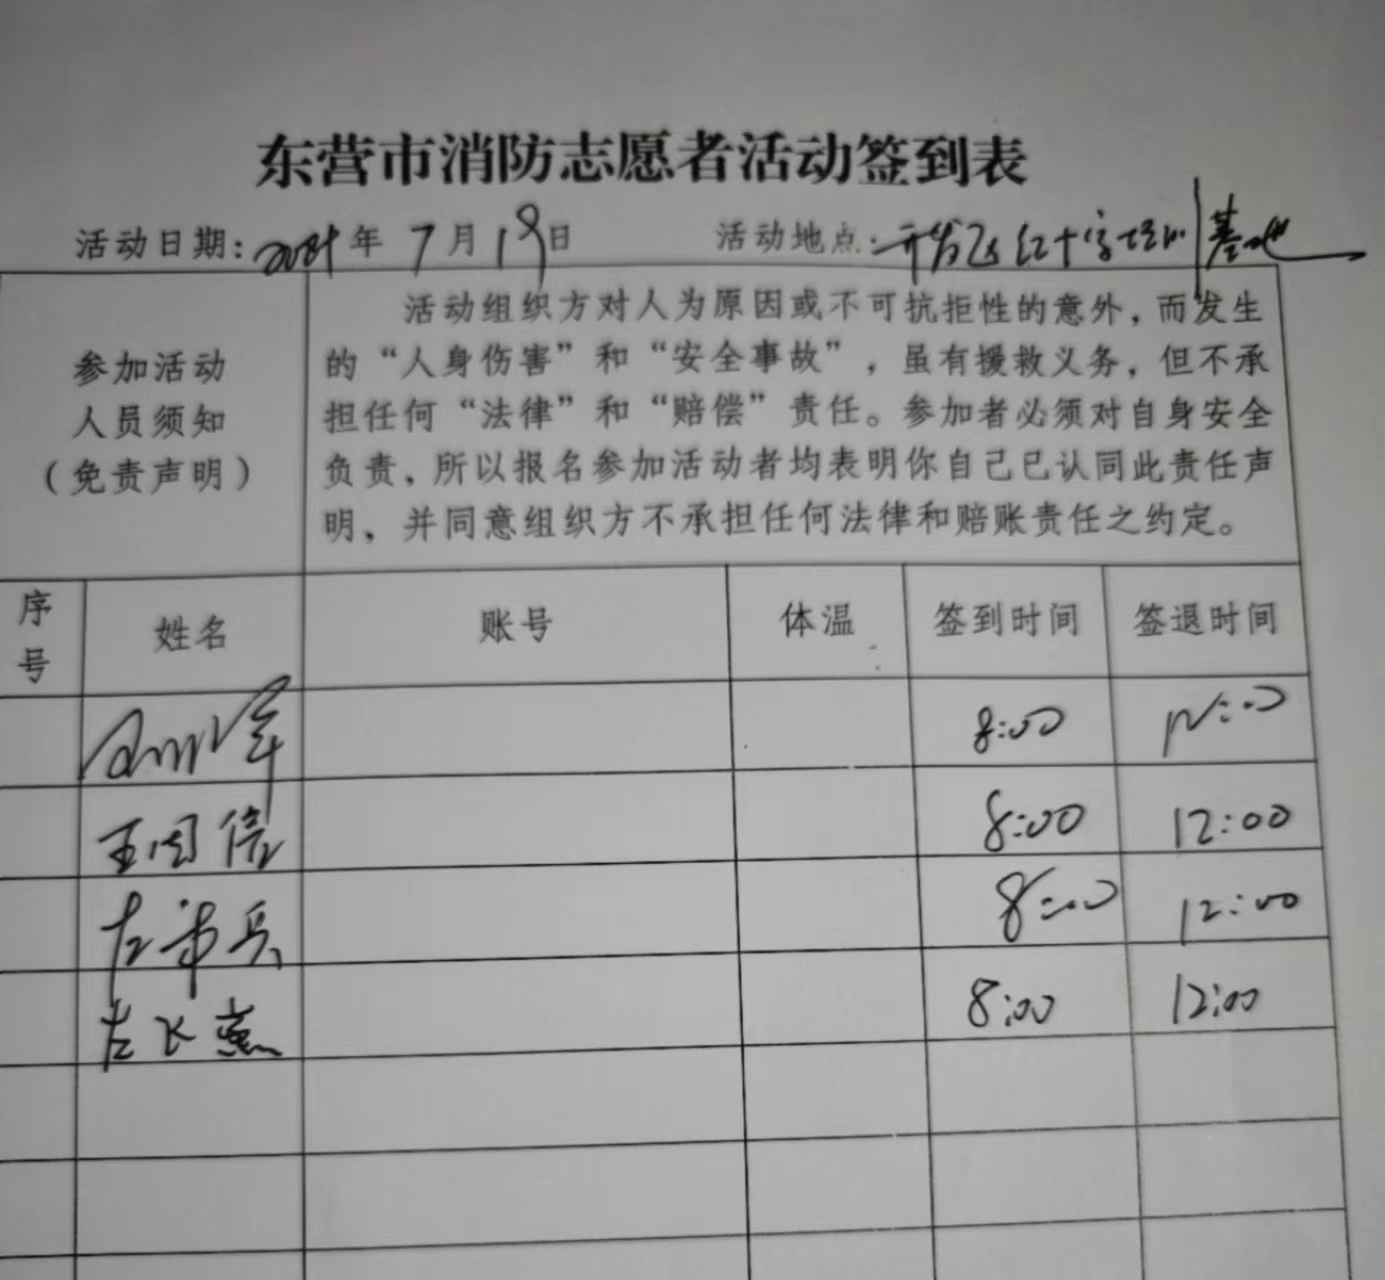 东营市消防志愿者活动签到表
活动日期: 年 7 月 19 日 活动地点: 开发区红十字培训基地
活动组织方对人为原因或不可抗拒性的意外，而发生
参加活动 的“人身伤害”和“安全事故”，虽有援救义务，但不承
人员须知 担任何“法律”和“赔偿”责任。参加者必须对自身安全
（免责声明） 负责，所以报名参加活动者均表明你自己已认同此责任声
明，并同意组织方不承担任何法律和赔账责任之约定。
序号 姓名 账号 体温 签到时间 签退时间
8:00 12:00
王国 8:00 12:00
左 兵 8:00 12:00
左飞燕 8:00 12:00